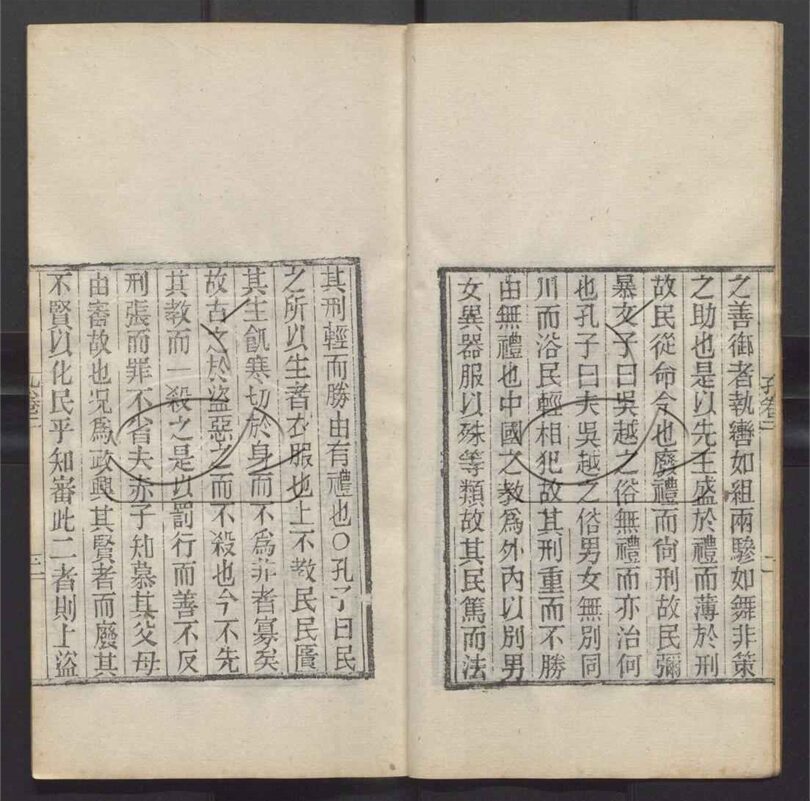 之善御者執轡如組兩驂如舞非策
之助也是以先王盛於禮而薄於刑
故民從命今也廢禮而尙刑故民彌
暴文子曰吳越之俗無禮而亦治何
也孔子曰夫吳越之俗男女無別同
川而浴民輕相犯故其刑重而不勝
由無禮也中國之教爲外內以別男
女異器服以殊等類故其民篤而法
其刑輕而勝由有禮也○孔子曰民
之所以生者衣服也上不教民民匱
其生飢寒切於身而不爲非者寡矣
故古之於盜惡之而不殺也今不先
其教而一殺之是以罰行而善不反
刑張而罪不省夫赤子知慕其父母
由審故也况爲政興其賢者而廢其
不賢以化民乎知審此二者則上盜